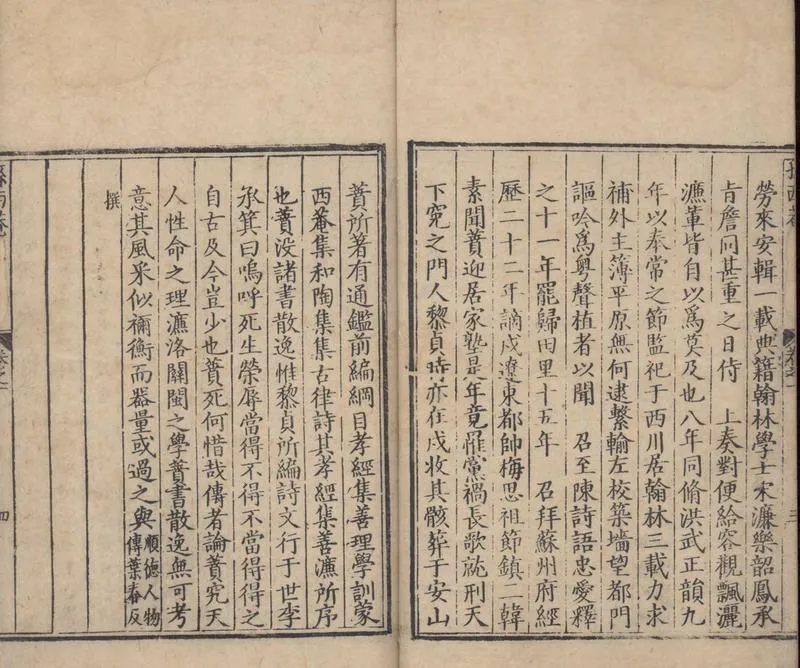 孫西菴
三
勞來安輯一載典籍翰林學士宋濂樂韶鳳承
肯詹同甚重之日侍　上奏對便給容觀飄灑
濂輩皆自以爲莫及也八年同脩洪武正韻九
年以奉常之節監祀于西川居翰林三載力求
補外主簿平原無何逮繫輸左校築墻望都門
謳吟爲粵聲植者以聞　召至陳詩語忠愛釋
之十一年罷歸田里十五年　召拜蘇州府經
歷二十二年謫戍遼東都帥梅思祖節鎮二韓
素聞蕡迎居家塾是年竟罹黨禍長歌就刑天
下寃之門人黎貞時亦在戍收其骸葬于安山
蕡所著有通鑑前編綱目孝經集善理學訓蒙
西菴集和陶集集古律詩其孝經集善濂所序
也蕡没諸書散逸惟黎貞所編詩文行于世李
承箕曰嗚呼死生榮辱當得不得不當得得之
自古及今豈少也蕡死何惜哉傳者論蕡究天
人性命之理濂洛關閩之學蕡書散逸無可考
意其風采似禰衡而器量或過之與順德人物
傳葉春及
撰
孫西菴
四